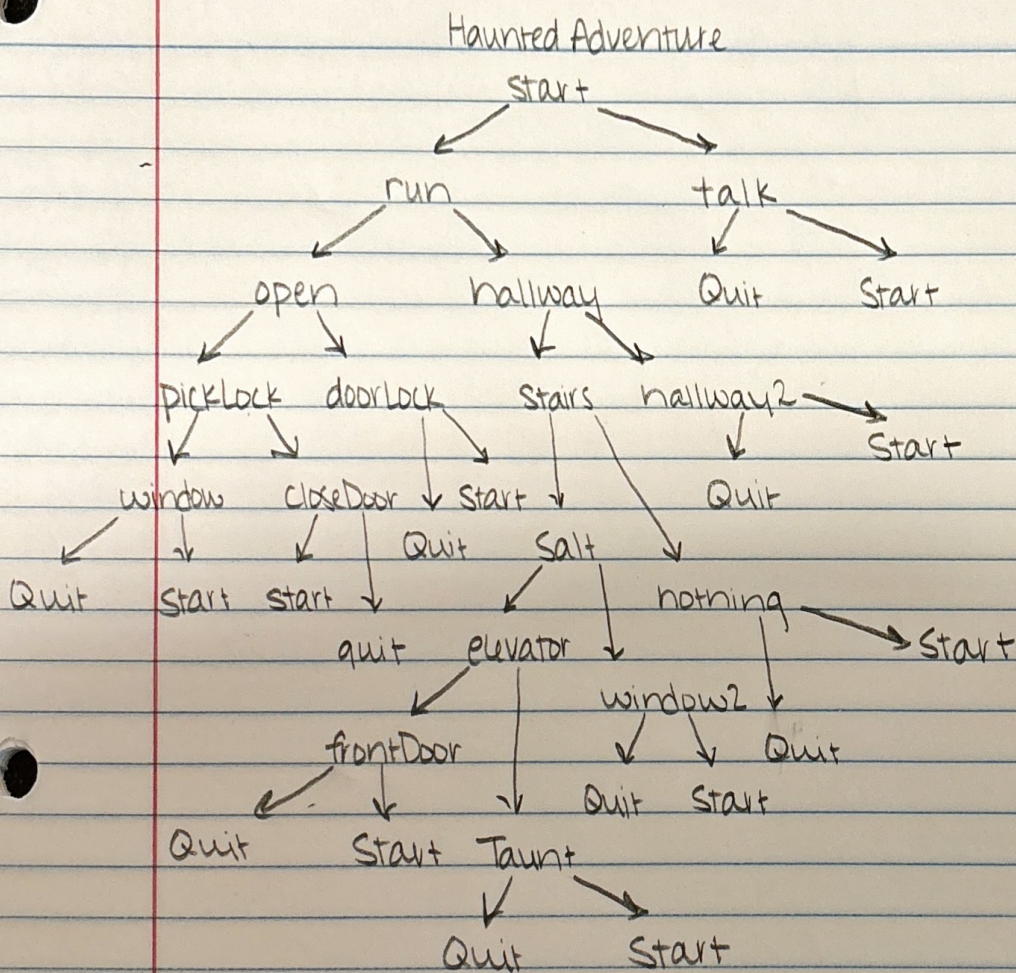 Haunted Adventure
Start
run talk
open hallway Quit Start
pickLock doorLock Stairs hallway2
Start
window closeDoor Start Quit
Quit Salt
Quit Start Start nothing
quit elevator Start
window2
frontDoor Quit
Quit Start
Quit Start Taunt
Quit Start